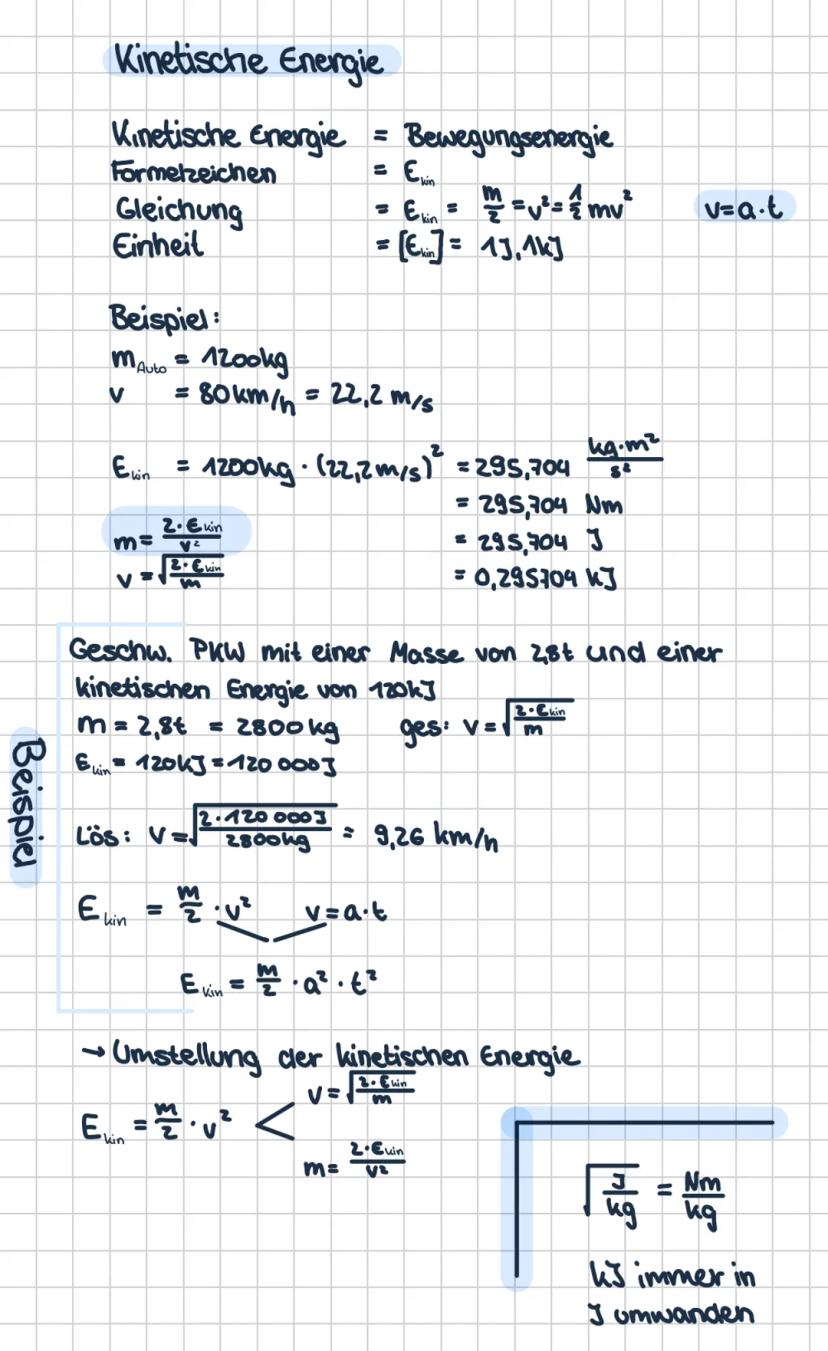 Kinetische Energie
Kinetische Energie = Bewegungsenergie
Formelzeichen = Ekin
Gleichung = Ekin = m/2 = v² = 1/2 mv²   v=a·t
Einheit = [Ekin] = 1J, 1kJ
Beispiel:
mAuto = 1200kg
v = 80km/h = 22,2 m/s
Ekin = 1200kg · (22,2m/s)² = 295,704 kg·m²/s²
= 295,704 Nm
m= 2·Ekin/v²   = 295,704 J
v = √(2·Ekin/m)   = 0,295704 kJ
Geschw. PKW mit einer Masse von 2,8t und einer
kinetischen Energie von 120kJ
m = 2,8t = 2800kg   ges: v = √(2·Ekin/m)
Ekin = 120kJ = 120 000J
Beispiel
Lös: v = √(2·120 000J/2800kg) = 9,26 km/h
Ekin = m/2 · v²   v=a·t
Ekin = m/2 · a² · t²
→ Umstellung der kinetischen Energie
v = √(2·Ekin/m)
Ekin = m/2 · v² <
m = 2·Ekin/v²
√(J/kg) = Nm/kg
kJ immer in
J umwanden